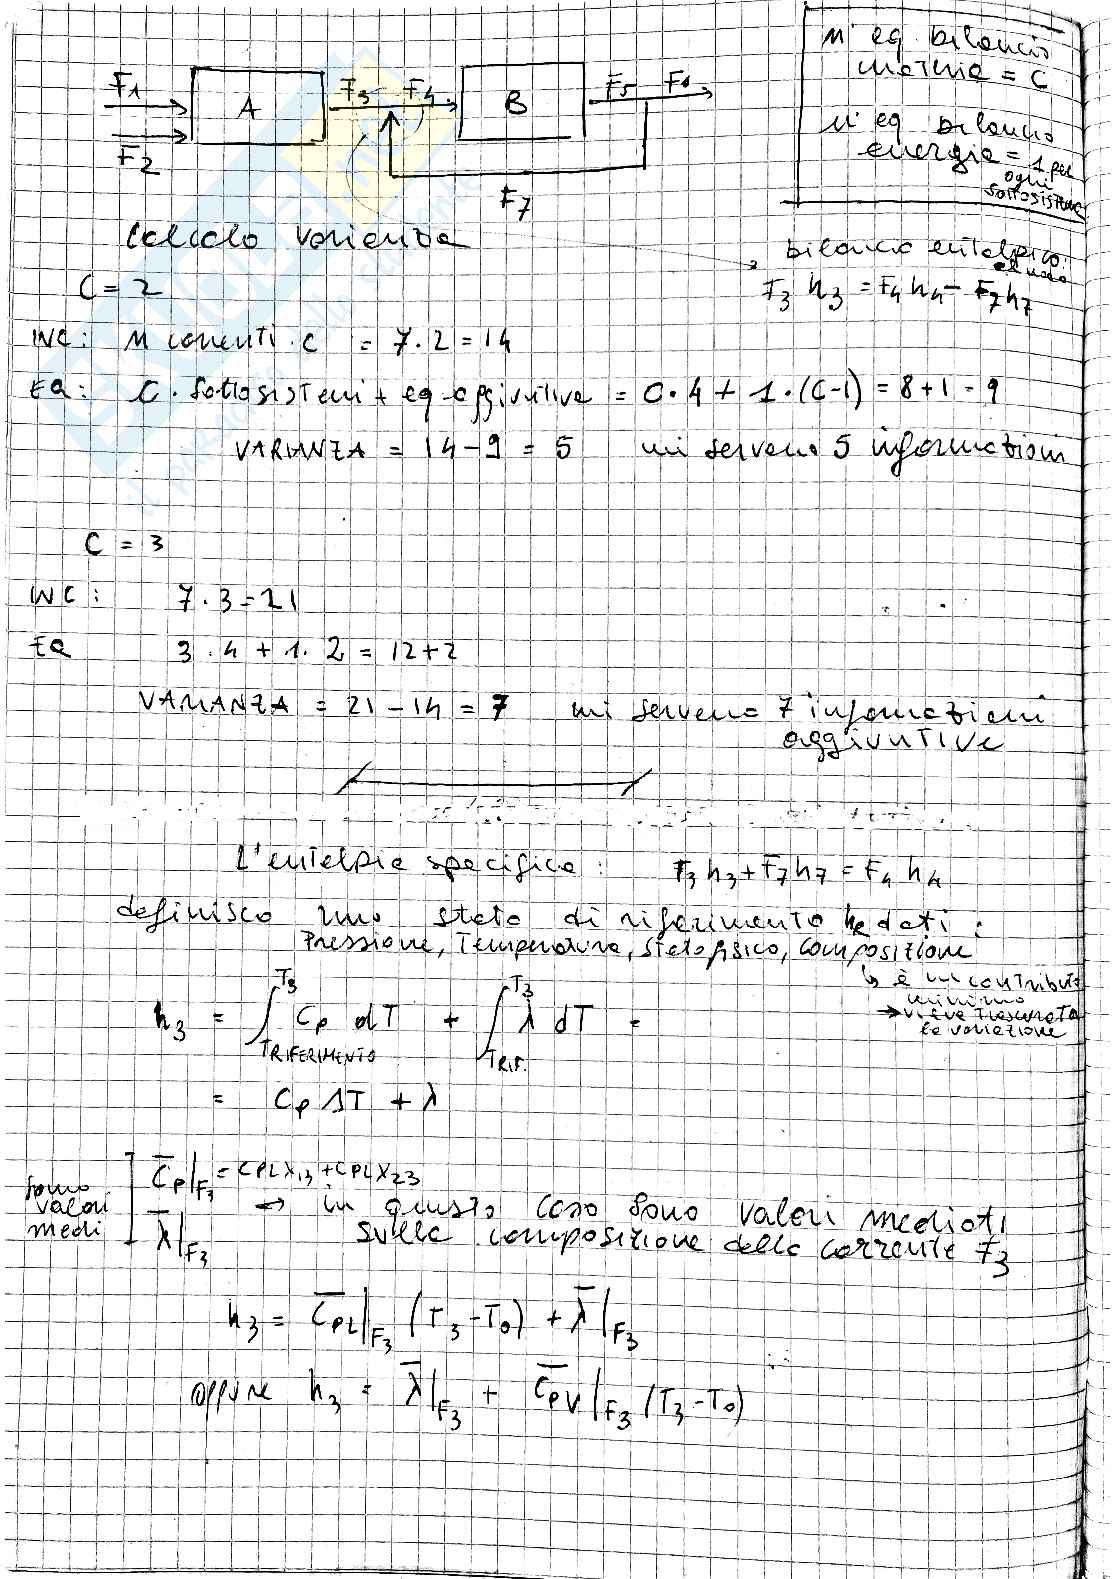 n° eq. bilancio
materia = C
n° eq bilancio
energia = 1 per
ogni
sottosistema
F1 A F3 F4 B F5 F6
F2
F7
Calcolo varianza
bilancio entalpico:
al nodo
F3 h3 = F4 h4 - F7 h7
C = 2
INC: n correnti · C = 7 · 2 = 14
EQ: C · sottosistemi + eq. aggiuntive = C · 4 + 1 · (C-1) = 8 + 1 = 9
VARIANZA = 14 - 9 = 5 mi servono 5 informazioni
C = 3
INC: 7 · 3 = 21
EQ 3 · 4 + 1 · 2 = 12 + 2
VARIANZA = 21 - 14 = 7 mi servono 7 informazioni
aggiuntive
L'entalpia specifica: F3 h3 + F7 h7 = F4 h4
definisco uno stato di riferimento dati:
Pressione, Temperatura, Stato fisico, composizione
↳ è un contributo
minimo
→ viene trascurata
la variazione
h3 = ∫ T3 TRIFERIMENTO Cp dT + ∫ T3 TRIF. λ dT =
= Cp ΔT + λ
sono
valori
medi
C̄p|F3 = CPL X13 + CPL X23
λ̄|F3
→ in questo caso sono valori mediati
sulla composizione della corrente F3
h3 = C̄PL|F3 (T3 - T0) + λ̄|F3
oppure h3 = λ̄|F3 + C̄PV|F3 (T3 - T0)